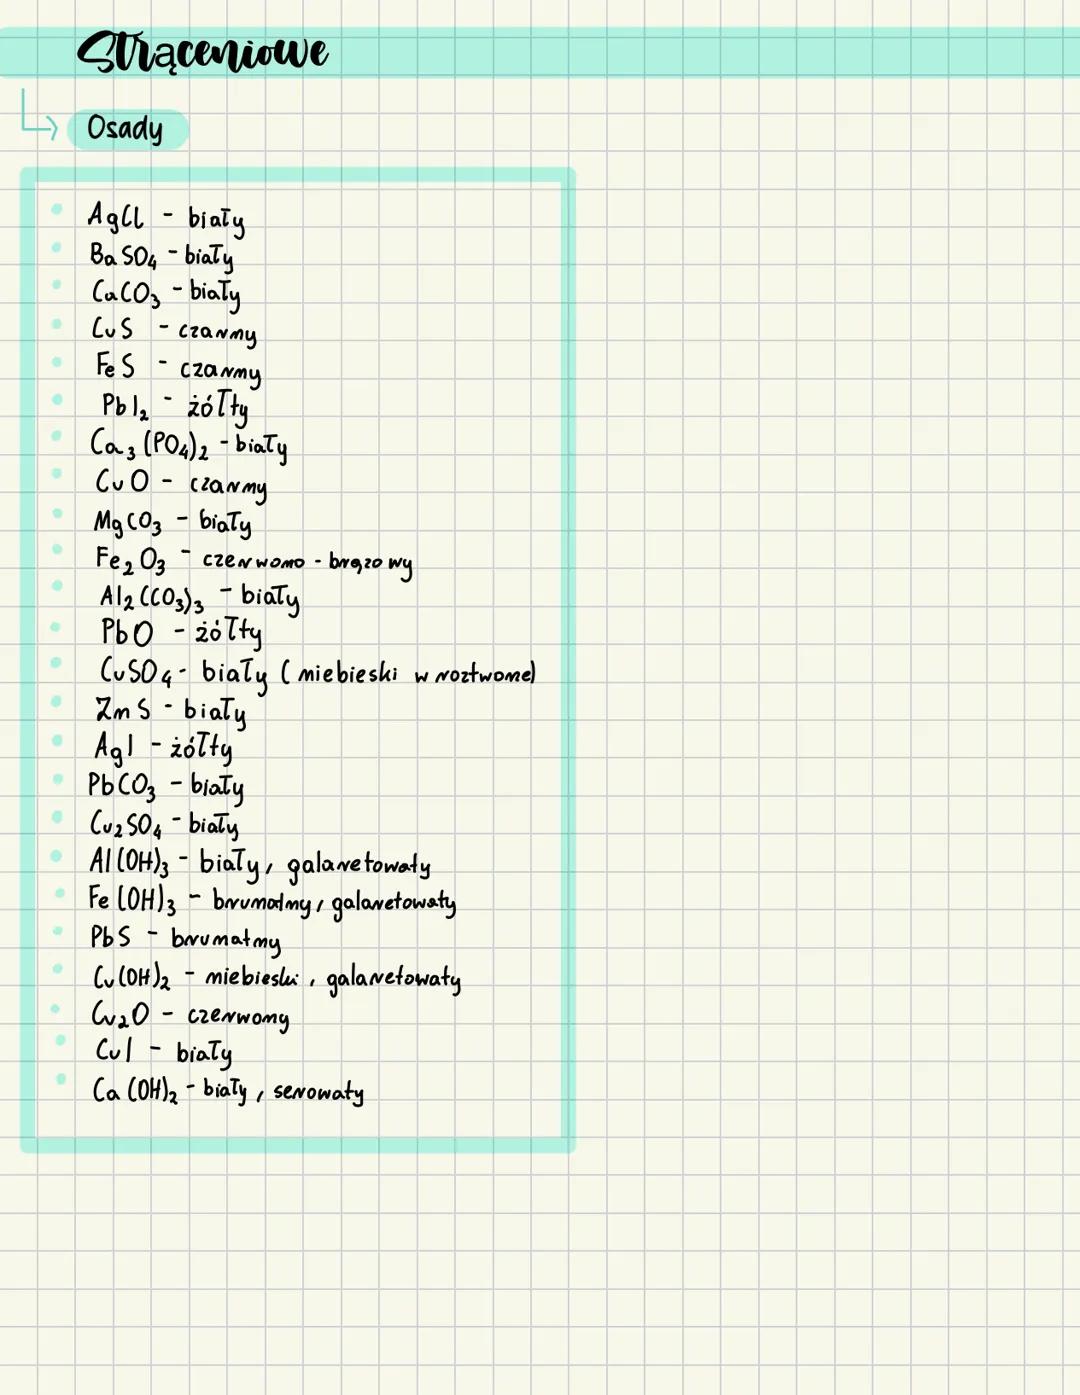 Strąceniowe
Osady
AgCl - biały
BaSO4 - biały
CaCO3 - biały
CuS - czarny
FeS - czarny
PbI2 - żółty
Ca3(PO4)2 - biały
CuO - czarny
MgCO3 - biały
Fe2O3 - czerwono - brązowy
Al2(CO3)3 - biały
PbO - żółty
CuSO4 - biały (niebieski w roztworze)
ZnS - biały
AgI - żółty
PbCO3 - biały
Cu2SO4 - biały
Al(OH)3 - biały, galaretowaty
Fe(OH)3 - brunatny, galaretowaty
PbS - brunatny
Cu(OH)2 - niebieski, galaretowaty
Cu2O - czerwony
CuI - biały
Ca(OH)2 - biały, serowaty